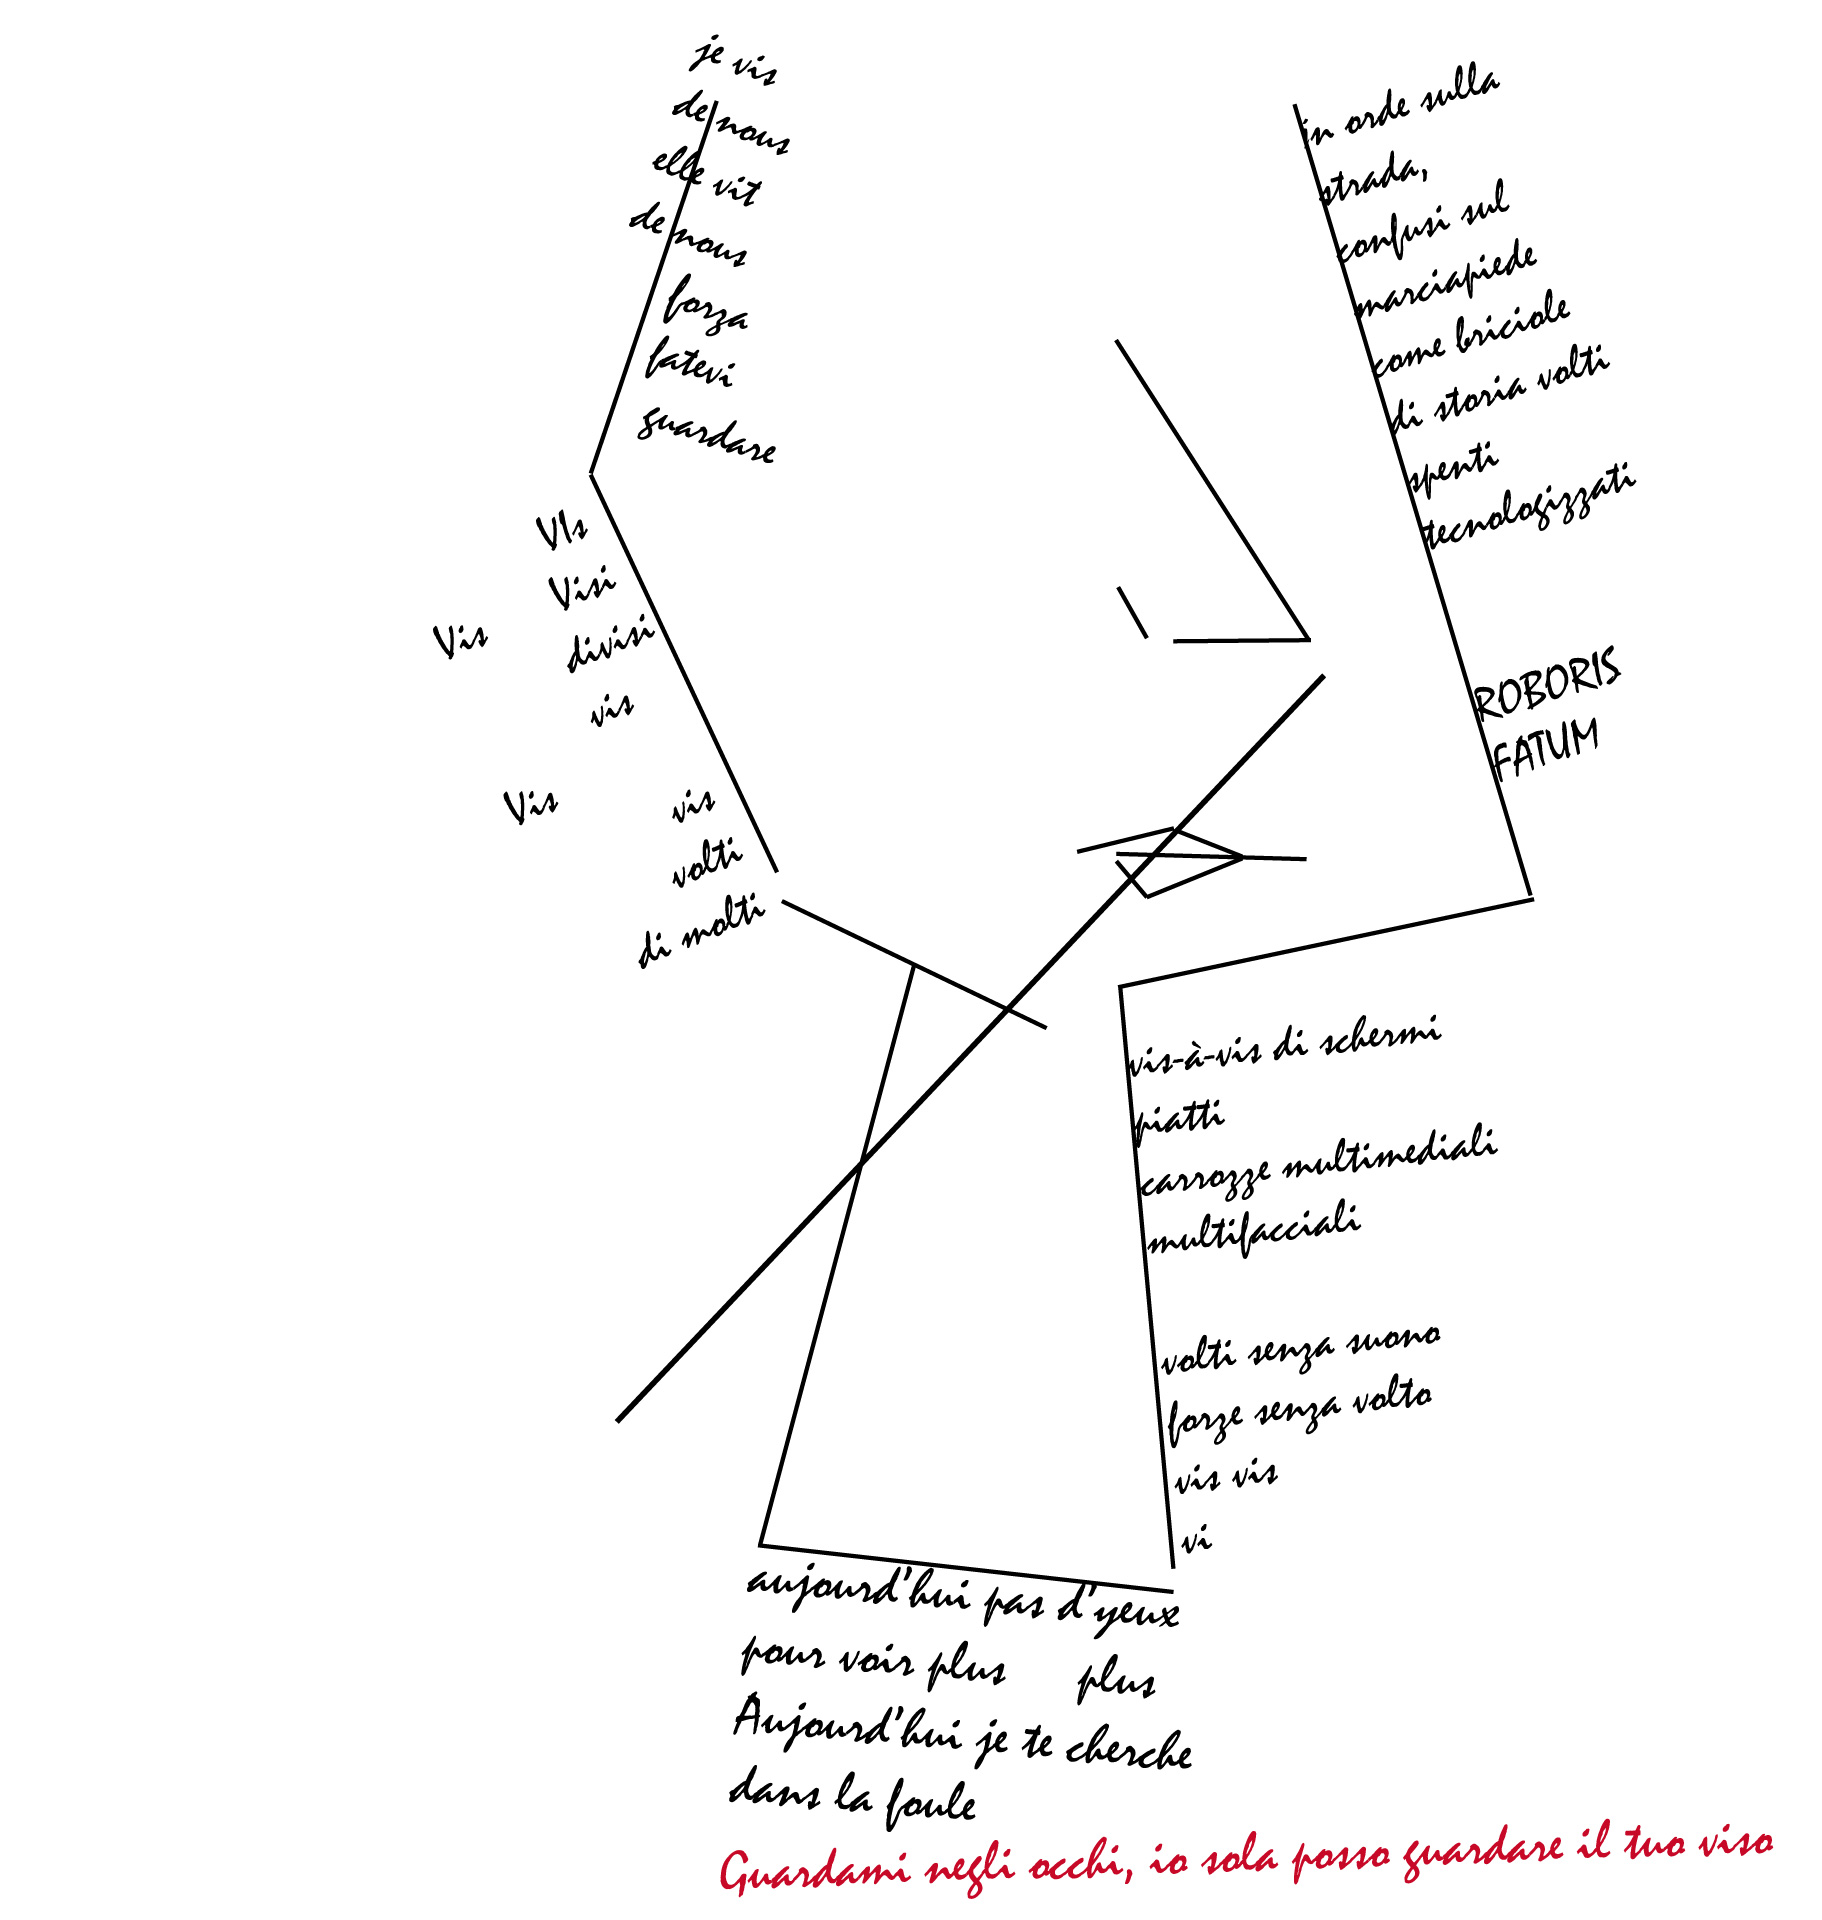 je vis
de nous
elle vit
de nous
forza
fatevi
guardare
VIs
Visi
Vis
divisi
vis
Vis
vis
volti
di molti
in orde sulla
strada,
confusi sul
marciapiede
come briciole
di storia volti
spenti
tecnologizzati
ROBORIS
FATUM
vis-à-vis di schermi
piatti
carrozze multimediali
multifacciali
volti senza suono
forze senza volto
vis vis
vi
aujourd'hui pas d'yeux
pour voir plus plus
Aujourd'hui je te cherche
dans la foule
Guardami negli occhi, io sola posso guardare il tuo viso